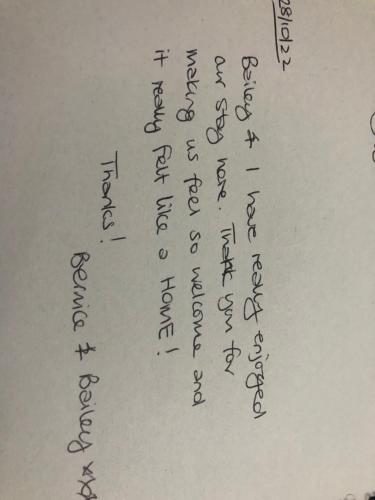 28/10/22
Bailey & I have really enjoyed
our stay here. Thank you for
making us feel so welcome and
it really felt like a HOME!
Thanks!
Bernice & Bailey xxx